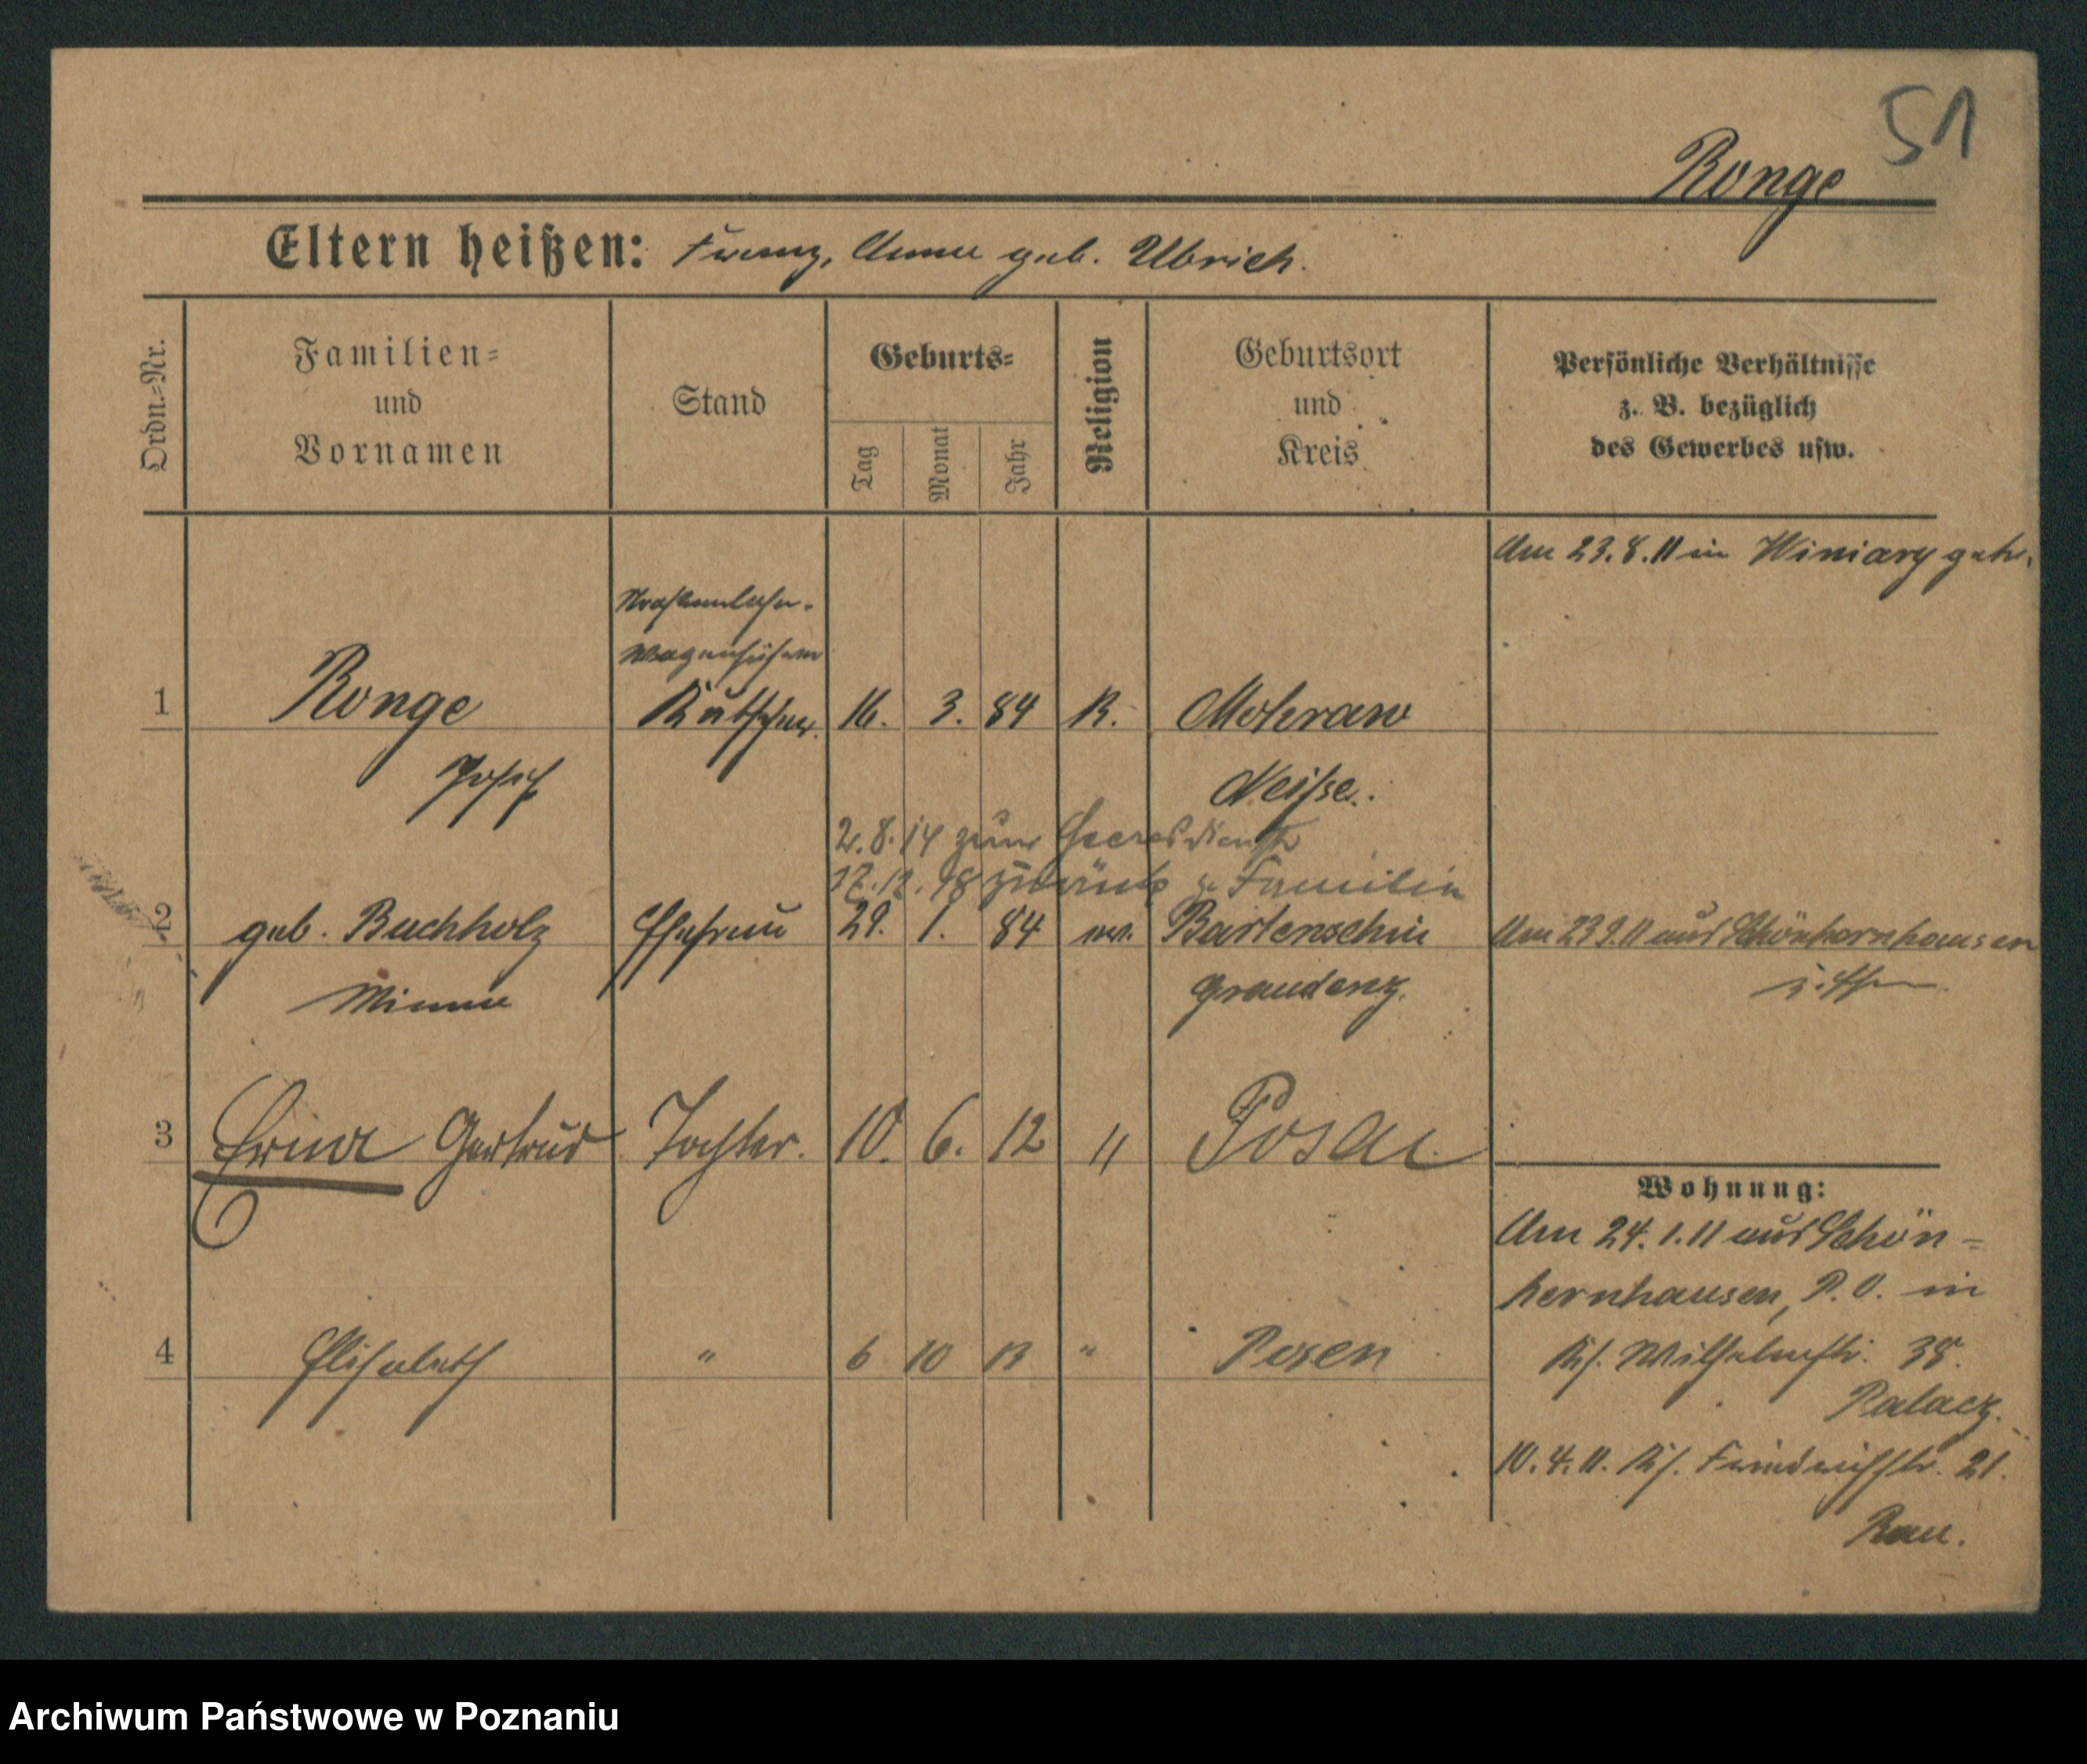 51
Ronge
Eltern heißen: Franz, Anna geb. Ulbrich.
Ordn.=Nr.
Familien=
und
Vornamen
Stand
Geburts=
Tag
Monat
Jahr
Religion
Geburtsort
und
Kreis
Persönliche Verhältnisse
z. B. bezüglich
des Gewerbes usw.
Am 23.8.11 in Winiary getr.
Straßenbahn-
wagenführer
1 Ronge Kutscher. 16. 3. 84 K. Mohrau
Josef Neisse.
2.8.14 zum Heeresdienst
17.12.18 zurück z. Familie
2 geb. Buchholz Ehefrau 29. 1. 84 ev. Bartenschin Am 23 9.11 aus Schönhernhausen
Minna Graudenz.
3 Erna Gertrud Tochter. 10. 6. 12 " Posen
Wohnung:
Am 24.1.11 aus Schön=
hernhausen, P.O. in
4 Elisabeth " 6 10 13 " Posen
Ks. Wilhelmstr. 38.
Palacz.
10.4.11. Ks. Friedrichstr. 21.
Rau.
Archiwum Państwowe w Poznaniu